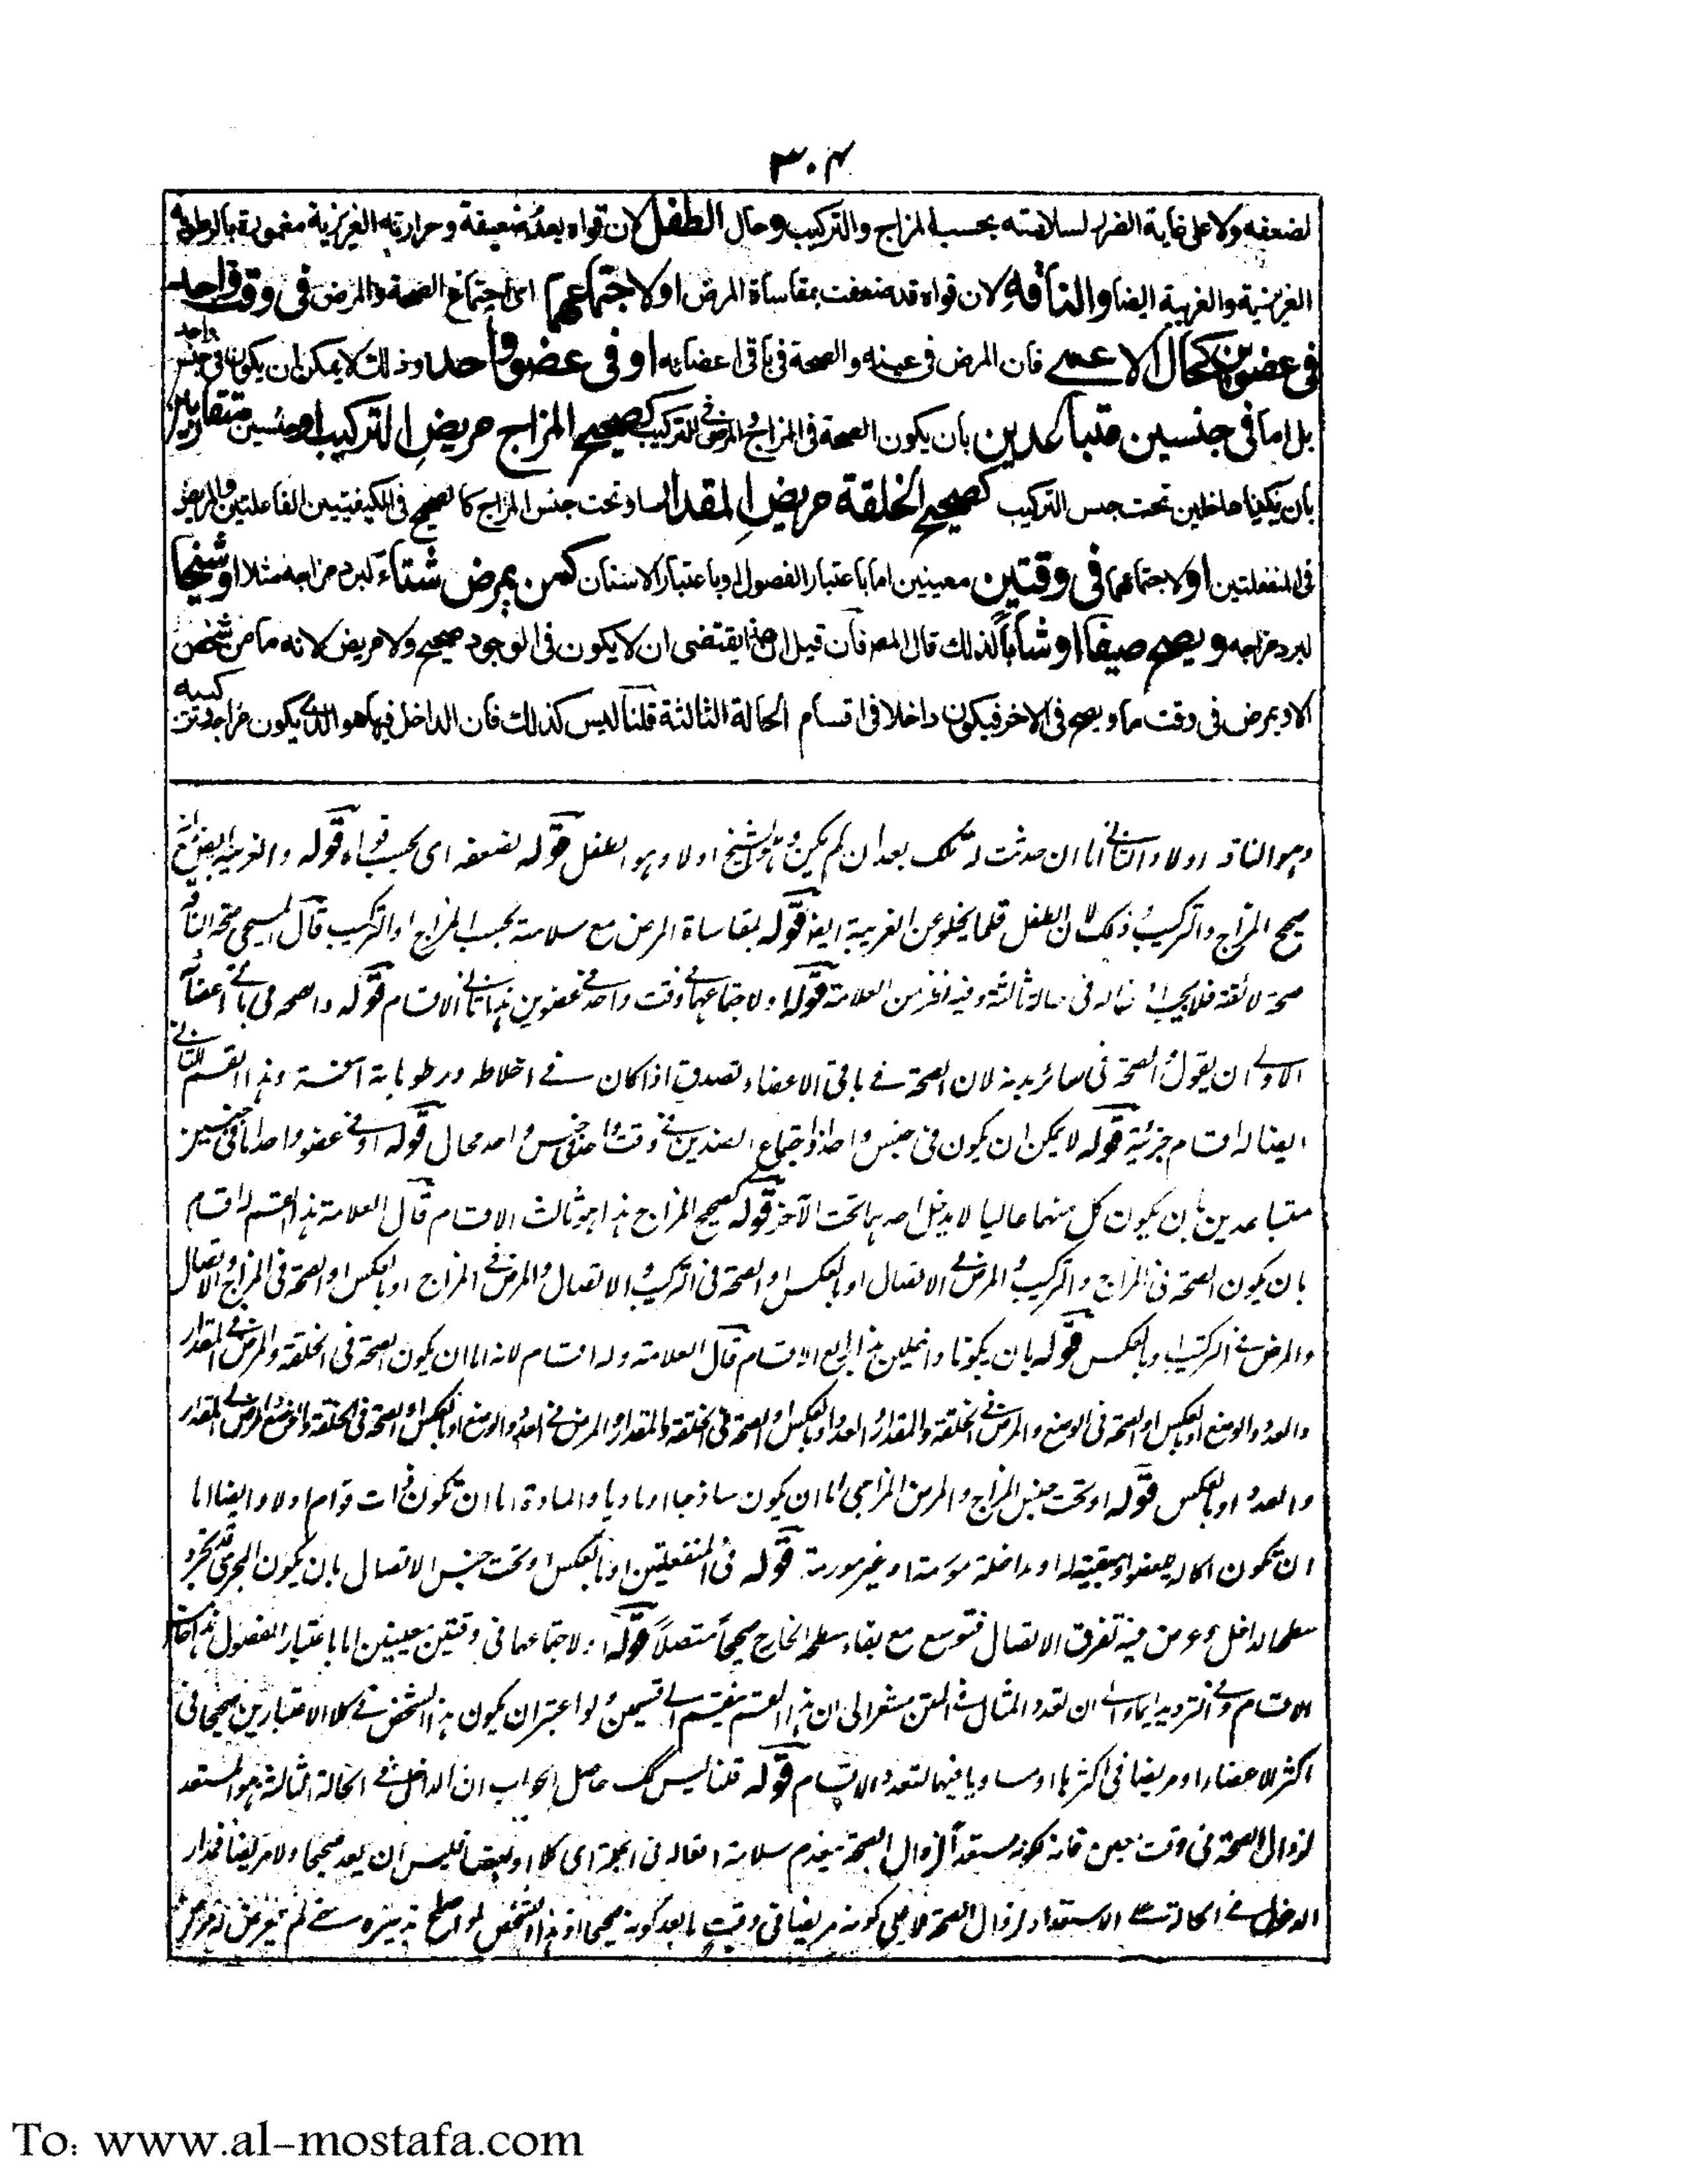 ٣٠٤
لضعفه ولا على غاية الضرر لسلامته بحسب المزاج والتركيب وحال الطفل لان قواه بعد ضعيفة وحرارته الغريزية مغمورة بالرطوبة
الغريزية والغريبة ايضا والناقه لان قواه قد ضعفت بمقاساة المرض او لاجتماعهما اى اجتماع الصحة والمرض فى وقت واحد
فى عضوين كحال الاعمى فان المرض فى عينه والصحة فى باقى اعضائه او فى عضو واحد وذلك لا يمكن ان يكون فى جنس واحد
بل اما فى جنسين متباعدين بان يكون الصحة فى المزاج والمرض فى التركيب كصحيح المزاج مريض التركيب او جنسين متقاربين
بان يكونا داخلين تحت جنس التركيب كصحيح الخلقة مريض المقدار او تحت جنس المزاج كالصحيح فى الكيفيتين الفاعلتين والمريض
فى المنفعلتين او لاجتماعهما فى وقتين معينين اما باعتبار الفصول او باعتبار الاسنان كمن يمرض شتاء لبرد مزاجه مثلا او شيخا
لبرد مزاجه ويصح صيفا او شابا لذلك قال المص فان قيل ان هذا يقتضى ان لا يكون فى الوجود صحيح ولا مريض لانه ما من شخص
الا ويمرض فى وقت ما ويصح فى الاخر فيكون داخلا فى اقسام الحالة الثالثة قلنا ليس كذلك فان الداخل فيها هو الذى يكون مزاجه وتركيبه
وهو الناقه اولا والثانى اما ان حدثت له تلك بعد ان لم يكن وهو الشيخ اولا وهو الطفل قوله لضعفه اى بحسب قواه قوله والغريبة ايضا
صحيح المزاج والتركيب وذلك لان الطفل قلما يخلو عن الغريبة ايضا قوله بمقاساة المرض مع سلامته بحسب المزاج او التركيب قال المسيحى صحة الناقه
صحة لائقة فلا يجب فى حالة ثالثة وفيه نظر من العلامة قوله او لاجتماعهما فى وقت واحد فى عضوين هذا ثانى الاقسام قوله والصحة فى باقى اعضائه
الاولى ان يقول الصحة فى سائر بدنه لان الصحة فى باقى الاعضاء تصدق اذا كان فى اخلاطه ورطوباته آفة وهذا القسم الثانى
ايضا له اقسام جزئية قوله لا يمكن ان يكون فى جنس واحد اذ اجتماع الضدين فى وقت واحد فى جنس واحد محال قوله او فى عضو واحد اما فى جنسين
متباعدين بان يكون كل منهما عاليا لا يدخل احدهما تحت الآخر قوله كصحيح المزاج هذا هو ثالث الاقسام قال العلامة هذا القسم له اقسام
بان يكون الصحة فى المزاج والتركيب والمرض فى الاتصال او بالعكس او الصحة فى التركيب والاتصال والمرض فى المزاج او بالعكس او الصحة فى المزاج والاتصال
والمرض فى التركيب او بالعكس قوله بان يكونا داخلين هذا رابع الاقسام قال العلامة وله اقسام لانه اما ان يكون الصحة فى الخلقة والمرض فى المقدار
والعدد والوضع او بالعكس او الصحة فى الوضع والمرض فى الخلقة والمقدار والعدد او بالعكس او الصحة فى الخلقة والمقدار والمرض فى العدد والوضع او بالعكس او الصحة فى الخلقة والوضع والمرض فى المقدار
والعدد او بالعكس قوله او تحت جنس المزاج والمرض المزاجى اما ان يكون ساذجا او ماديا والمادة اما ان تكون ذات قوام اولا وايضا اما
ان تكون او مداخلة مورمة او غير مورمة قوله فى المنفعلتين او بالعكس او تحت جنس الاتصال بان يكون المجرى قد تجرد
سطحه الداخل وعرض فيه تفرق الاتصال فتوسع مع بقاء سطحه الخارج صحيحا متصلا قوله او لاجتماعهما فى وقتين معينين اما باعتبار الفصول هذا خامس
الاقسام وفى الترديد ايماء الى ان تعدد المثال فى المتن مشعر الى ان هذا القسم ينقسم الى قسمين ولو اعتبر ان يكون هذا الشخص فى كلا الاعتبارين صحيحا فى
اكثر الاعضاء او مريضا فى اكثرها او مساويا فيهما لتعدد الاقسام قوله قلنا ليس كك حاصل الجواب ان الداخل فى الحالة الثالثة هو المستعد
لزوال الصحة فى وقت معين فانه لكونه مستعدا لزوال الصحة ينعدم سلامة افعاله فى الجملة اى كلا او بعضا فليس ان يعد صحيحا ولا مريضا فمدار
الدخول فى الحالة على الاستعداد لزوال الصحة لا على كونه مريضا فى وقت ما بعد كونه صحيحا اذ هذا الشخص لو اصلح تدبيره حتى لم يعرض له مرض
To: www.al-mostafa.com